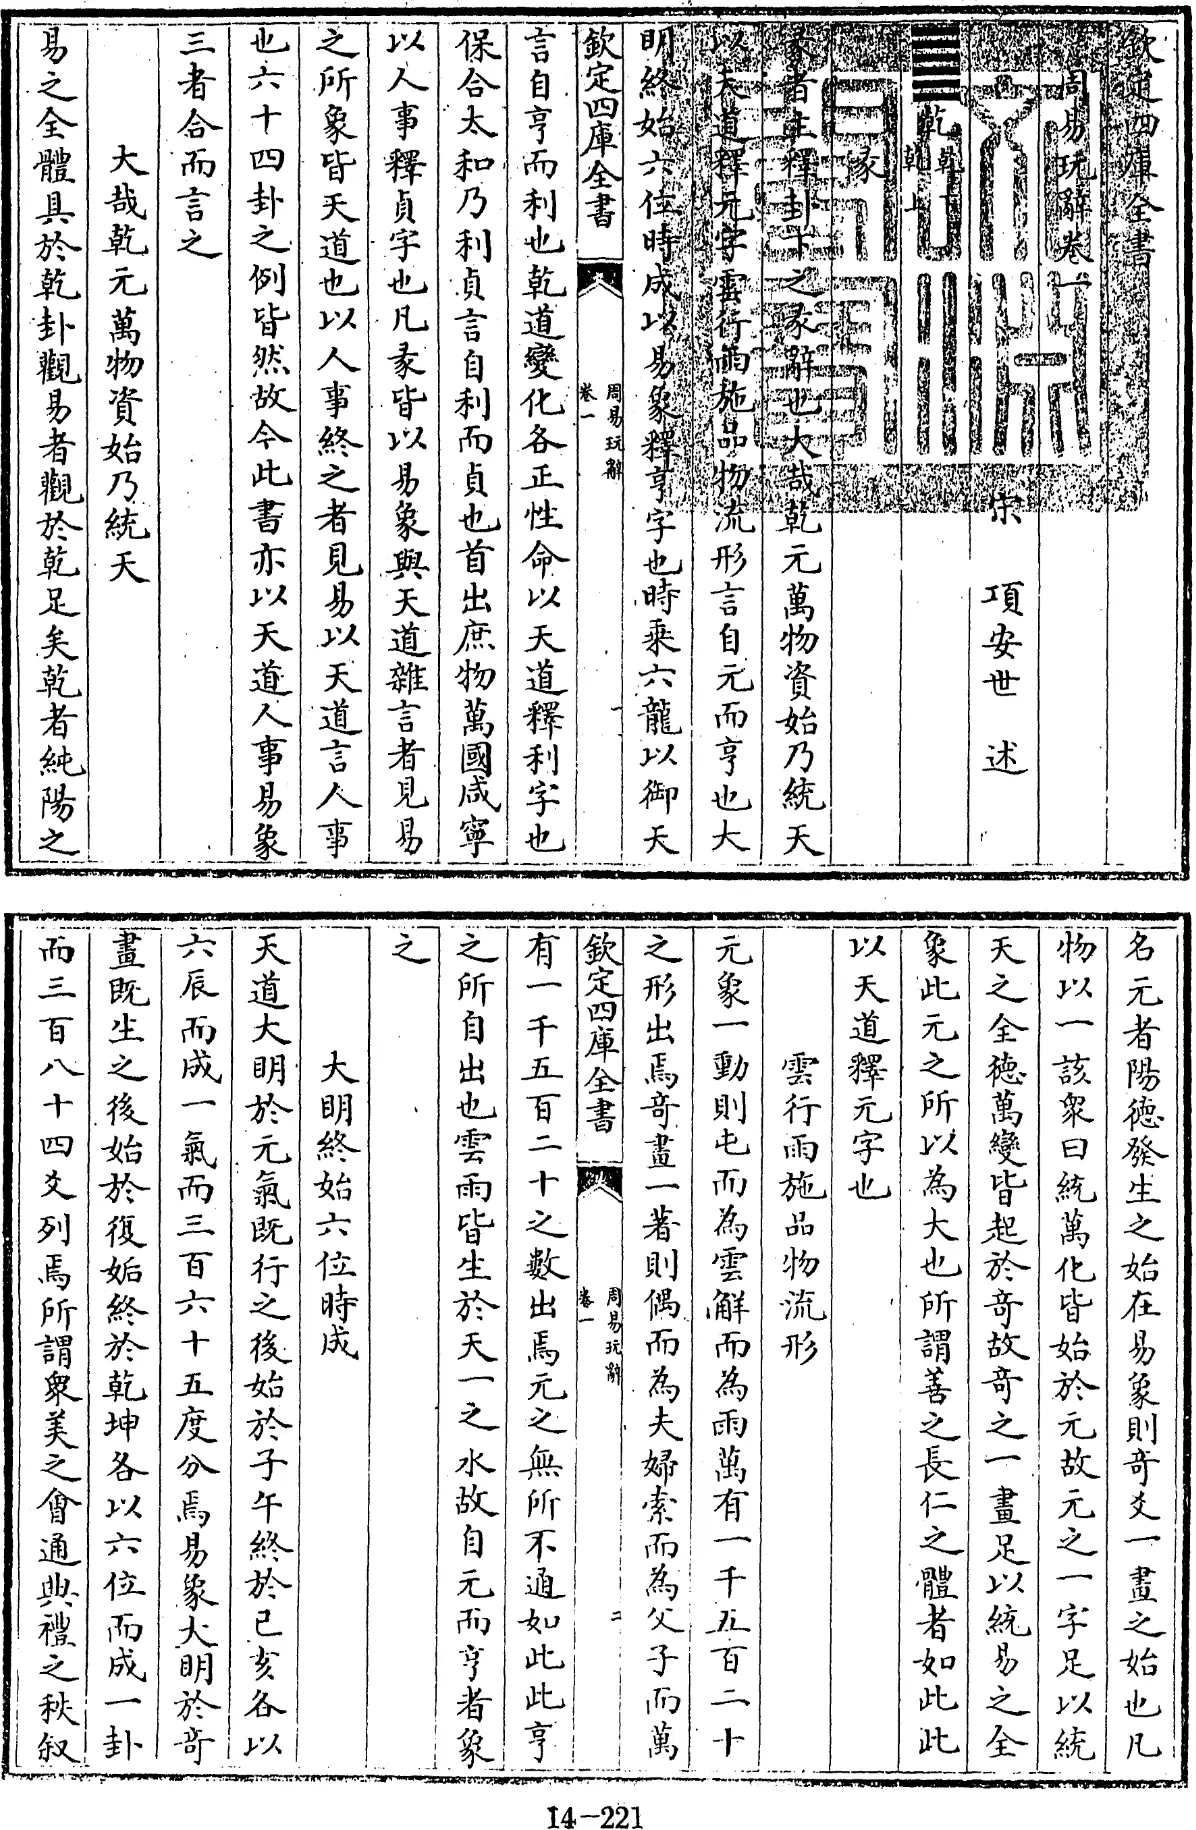 欽定四庫全書
周易玩辭卷一
宋 項安世 述
䷀乾下乾上
乾
彖
彖者主釋卦下之彖辭也大哉乾元萬物資始乃統天
以天道釋元字雲行雨施品物流形言自元而亨也大
明終始六位時成以易象釋亨字也時乘六龍以御天
欽定四庫全書
周易玩辭
卷一
一
言自亨而利也乾道變化各正性命以天道釋利字也
保合太和乃利貞言自利而貞也首出庶物萬國咸寧
以人事釋貞字也凡彖皆以易象與天道雜言者見易
之所象皆天道也以人事終之者見易以天道言人事
也六十四卦之例皆然故今此書亦以天道人事易象
三者合而言之
大哉乾元萬物資始乃統天
易之全體具於乾卦觀易者觀於乾足矣乾者純陽之
名元者陽德發生之始在易象則奇爻一畫之始也凡
物以一該衆曰統萬化皆始於元故元之一字足以統
天之全德萬變皆起於奇故奇之一畫足以統易之全
象此元之所以為大也所謂善之長仁之體者如此此
以天道釋元字也
雲行雨施品物流形
元象一動則屯而為雲解而為雨萬有一千五百二十
之形出焉奇畫一著則偶而為夫婦索而為父子而萬
欽定四庫全書
周易玩辭
卷一
二
有一千五百二十之數出焉元之無所不通如此此亨
之所自出也雲雨皆生於天一之水故自元而亨者象
之
大明終始六位時成
天道大明於元氣既行之後始於子午終於巳亥各以
六辰而成一氣而三百六十五度分焉易象大明於奇
畫既生之後始於復姤終於乾坤各以六位而成一卦
而三百八十四爻列焉所謂衆美之會通典禮之秩叙
14-221